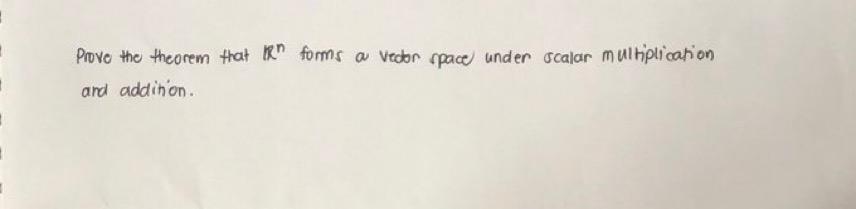 Prove the theorem that ℝⁿ forms a vector space under scalar multiplication
and addition.